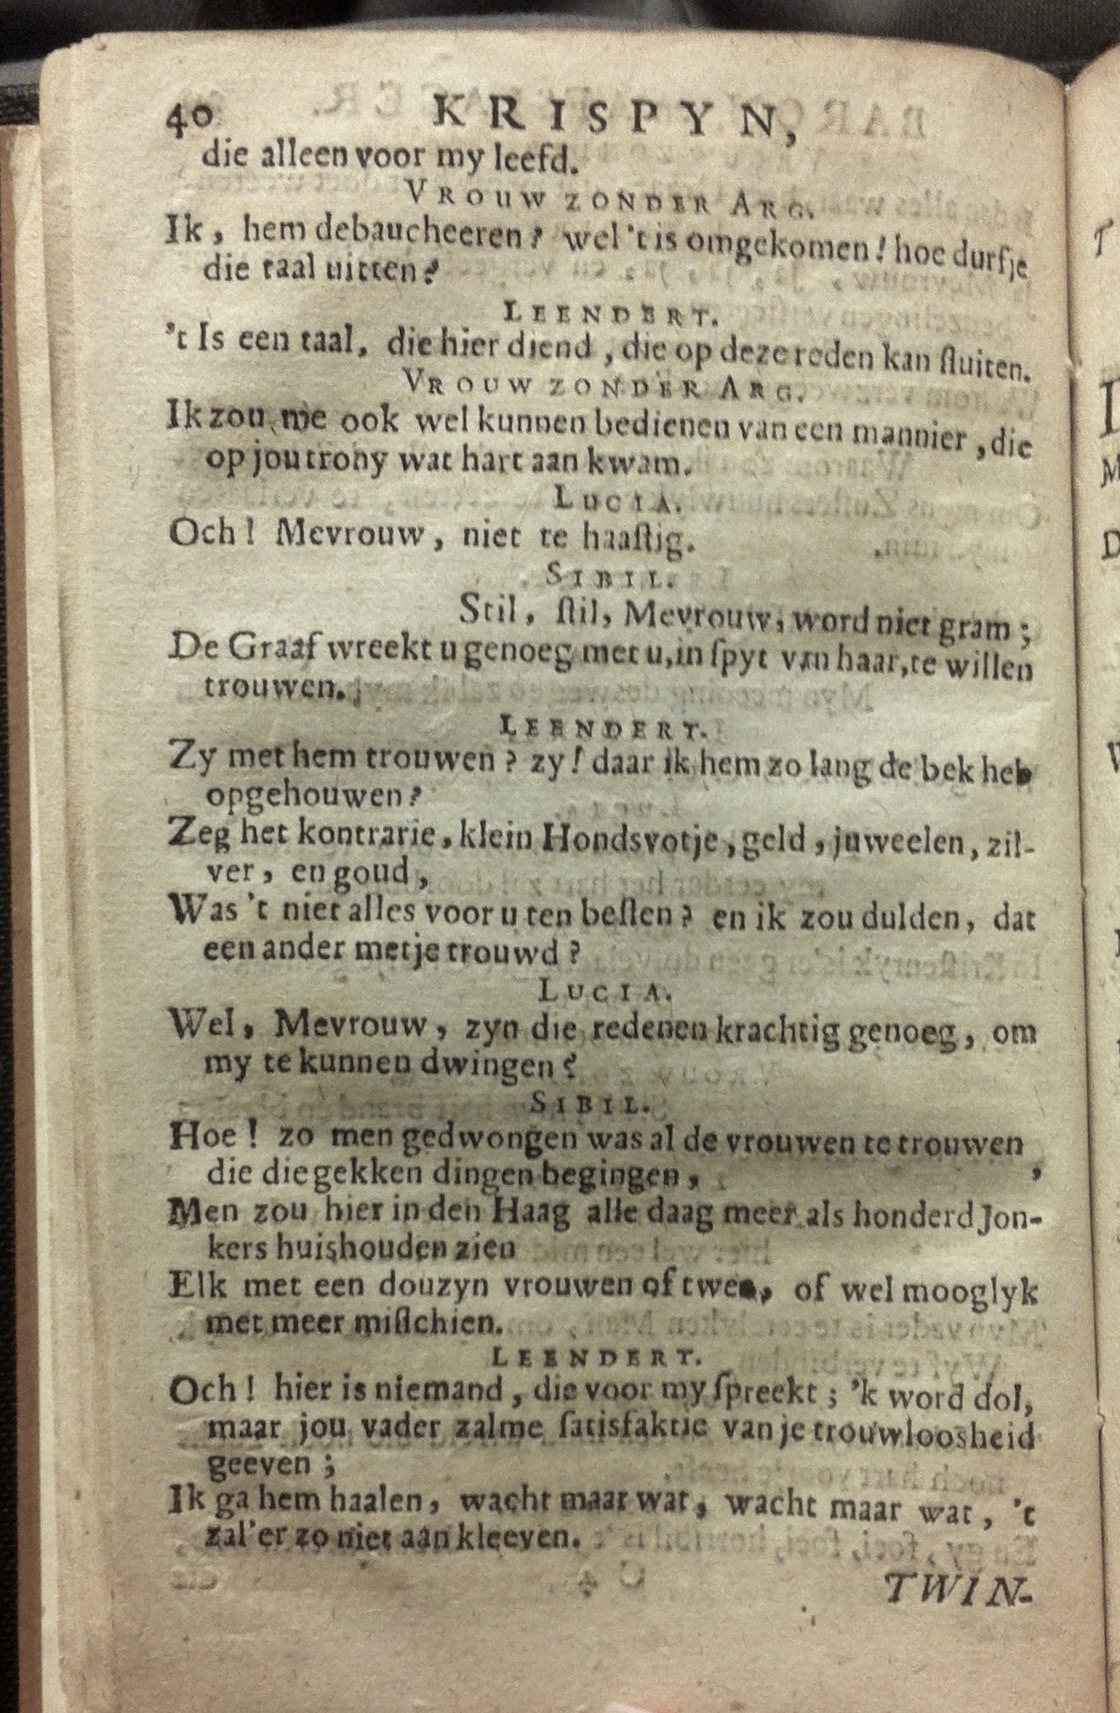 40 KRISPYN,
die alleen voor my leefd.
VROUW ZONDER ARG.
Ik, hem debaucheeren? wel 't is omgekomen! hoe durfje
die taal uitten?
LEENDERT.
't Is een taal, die hier diend, die op deze reden kan ſluiten.
VROUW ZONDER ARG.
Ik zou me ook wel kunnen bedienen van een mannier, die
op jou trony wat hart aan kwam.
LUCIA.
Och! Mevrouw, niet te haaſtig.
SIBIL.
Stil, ſtil, Mevrouw, word niet gram;
De Graaf wreekt u genoeg met u, in ſpyt van haar, te willen
trouwen.
LEENDERT.
Zy met hem trouwen? zy! daar ik hem zo lang de bek heb
opgehouwen?
Zeg het kontrarie, klein Hondsvotje, geld, juweelen, zil-
ver, en goud,
Was 't niet alles voor u ten beſten? en ik zou dulden, dat
een ander metje trouwd?
LUCIA.
Wel, Mevrouw, zyn die redenen krachtig genoeg, om
my te kunnen dwingen?
SIBIL.
Hoe! zo men gedwongen was al de vrouwen te trouwen,
die die gekken dingen begingen,
Men zou hier in den Haag alle daag meer als honderd Jon-
kers huishouden zien
Elk met een douzyn vrouwen of twee, of wel mooglyk
met meer miſſchien.
LEENDERT.
Och! hier is niemand, die voor my ſpreekt; 'k word dol,
maar jou vader zalme ſatisfaktie van je trouwloosheid
geeven;
Ik ga hem haalen, wacht maar wat, wacht maar wat, 't
zal'er zo niet aan kleeven.
TWIN-